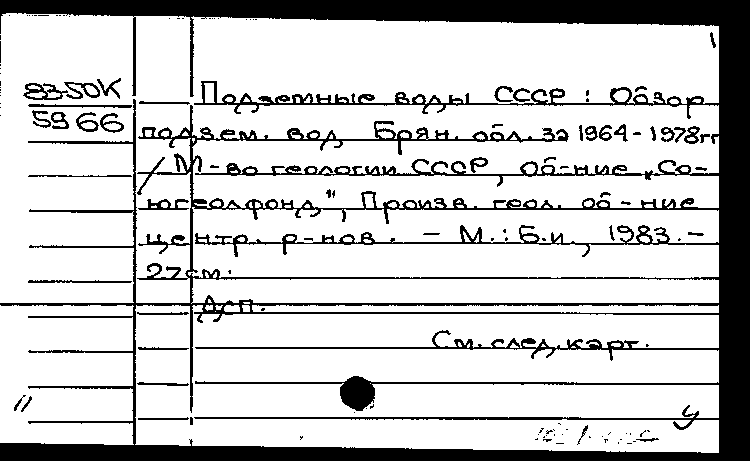 1
83-50К
5966
Подземные воды СССР : Обзор
подзем. вод Брян. обл. за 1964-1978гг
/ М-во геологии СССР, Об-ние „Со-
югеолфонд", Произв. геол. об-ние
центр. р-нов. - М.: Б.и., 1983.-
27см.
Дсп.
См. след. карт.
11
У